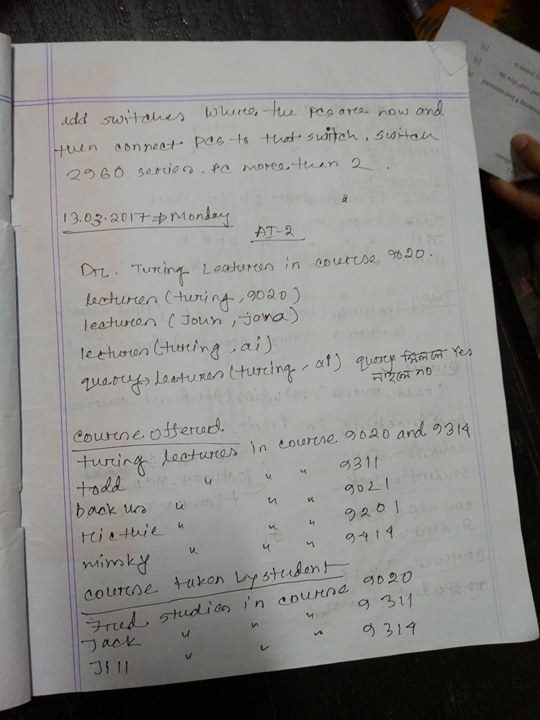 add switches where the pcs are now and
then connect pcs to that switch. switch
2960 series. pc more than 2.
13.03.2017 ⇒ Monday
AI-2
Dr. Turing Lectures in course 9020.
lectures (turing, 9020)
lectures (John, java)
lectures (turing, ai)
query> lectures (turing, ai) query মিললে Yes
নাহলে no
course offered
turing lectures in course 9020 and 9314
todd " " " 9311
backus " " " 9021
ritchie " " " 9201
minsky " " " 9414
course taken by student
Fred studies in course 9020
Jack " " " 9311
Jill " " " 9314